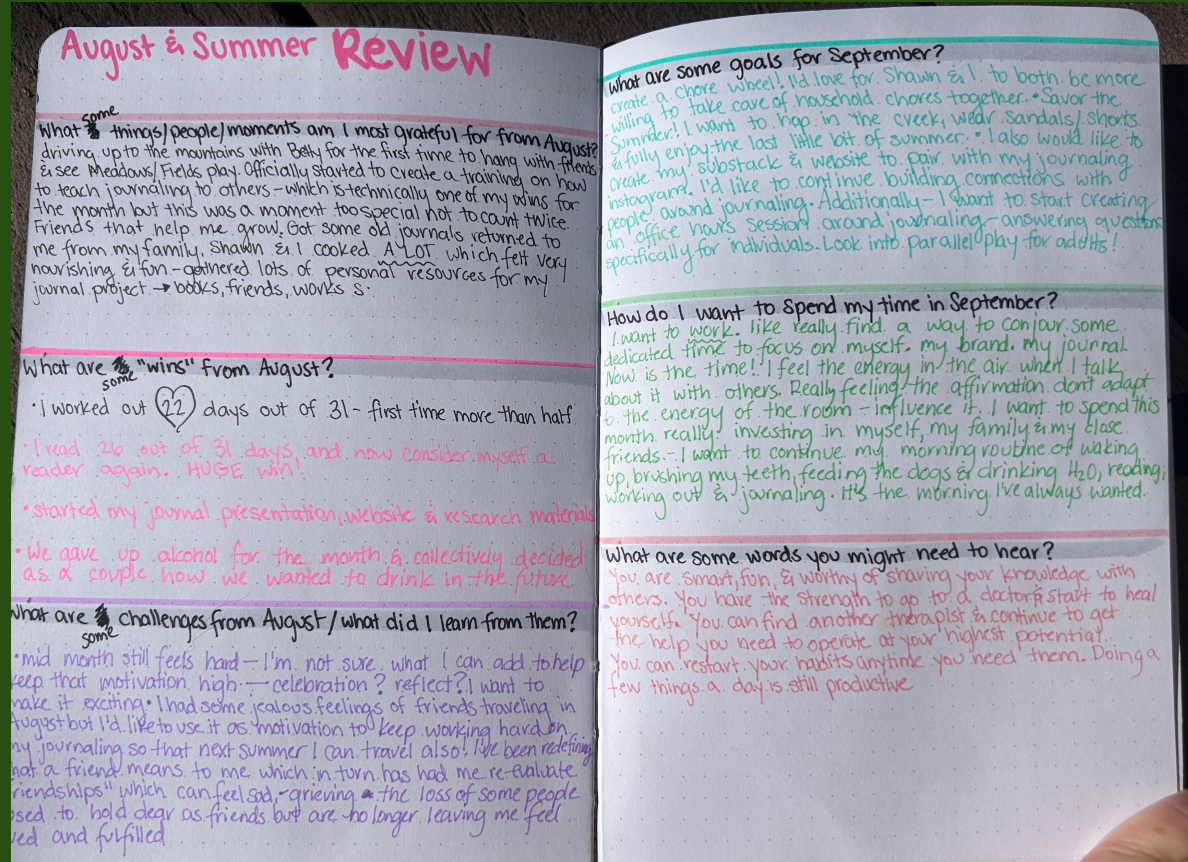 August & Summer Review
some
What things/people/moments am I most grateful for from August?
driving up to the mountains with Betty for the first time to hang with friends
& see Meadows/Fields play. Officially started to create a training on how
to teach journaling to others - which is technically one of my wins for
the month but this was a moment too special not to count twice.
Friends that help me grow. Got some old journals returned to
me from my family. Shawn & I cooked A LOT which felt very
nourishing & fun - gathered lots of personal resources for my
journal project → books, friends, works
What are "wins" from August?
some
• I worked out 22 days out of 31 - first time more than half
• I read 26 out of 31 days, and now consider myself a
reader again. HUGE win!
• started my journal presentation, website & research materials
• We gave up alcohol for the month & collectively decided
as a couple how we wanted to drink in the future
What are challenges from August/what did I learn from them?
some
• mid month still feels hard - I'm not sure what I can add to help
keep that motivation high - celebration? reflect? I want to
make it exciting • I had some jealous feelings of friends traveling in
August but I'd like to use it as motivation to keep working hard on
my journaling so that next summer I can travel also! I've been redefining
hat a friend means to me which in turn has had me re-evaluate
riendships" which can feel sad, - grieving the loss of some people
sed to hold dear as friends but are no longer leaving me feel
ved and fulfilled
What are some goals for September?
create a chore wheel! I'd love for Shawn & I to both be more
willing to take care of household chores together. • Savor the
Summer! I want to hop in the creek, wear sandals/shorts
& fully enjoy the last little bit of summer. • I also would like to
create my substack & website to pair with my journaling
instagram. I'd like to continue building connections with
people around journaling. Additionally - I want to start creating
an office hours session around journaling - answering questions
specifically for individuals. Look into parallel play for adults!
How do I want to spend my time in September?
I want to work. like really find a way to conjour some
dedicated time to focus on myself. my brand. my journal.
Now is the time! I feel the energy in the air when I talk
about it with others. Really feeling the affirmation don't adapt
to the energy of the room - influence it. I want to spend this
month really investing in myself, my family & my close
friends. - I want to continue my morning routine of waking
up, brushing my teeth, feeding the dogs & drinking H2O, reading,
working out & journaling. It's the morning I've always wanted.
What are some words you might need to hear?
You are smart, fun, & worthy of sharing your knowledge with
others. You have the strength to go to a doctor & start to heal
yourself. You can find another therapist & continue to get
the help you need to operate at your highest potential.
You can restart your habits anytime you need them. Doing a
few things a day is still productive